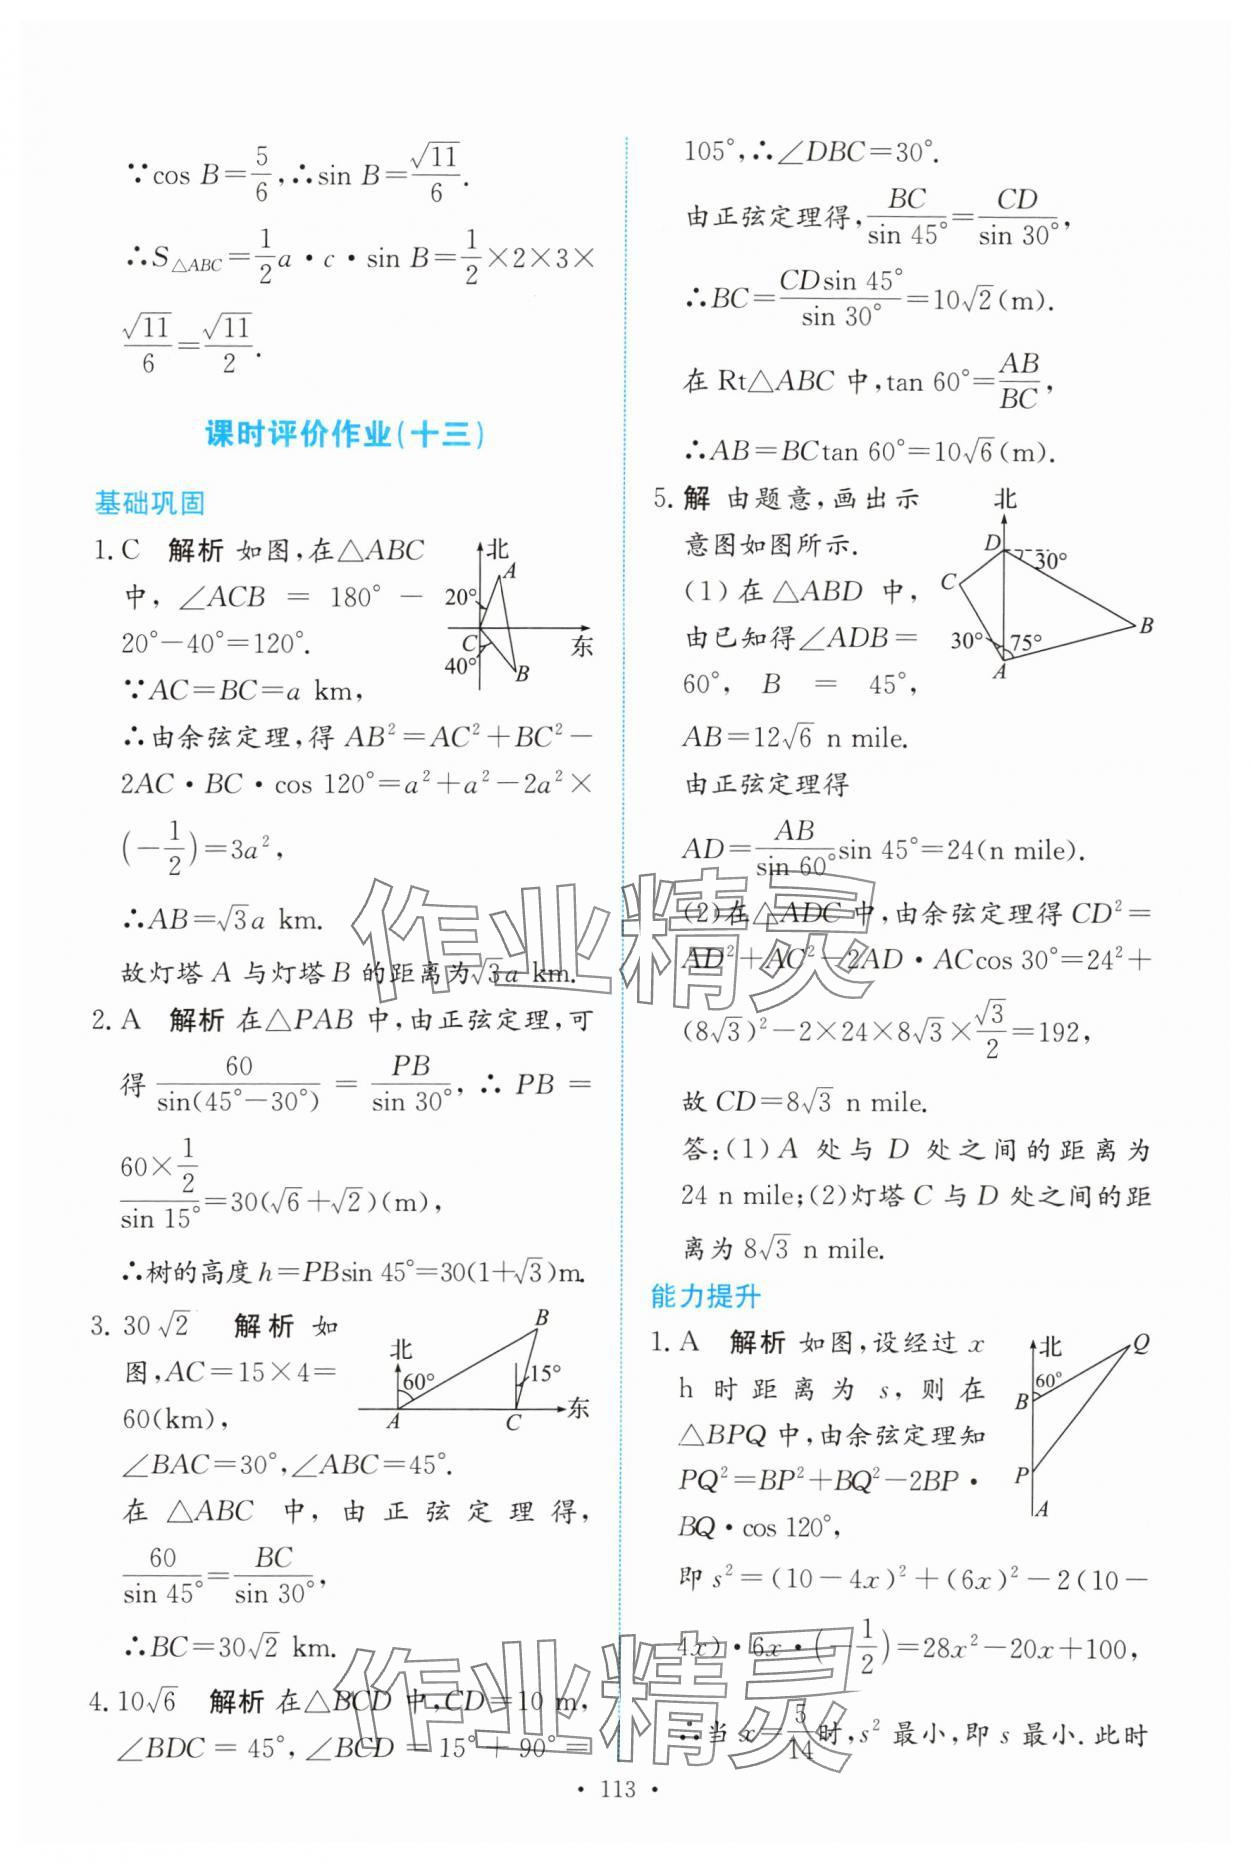 ∵cos B=5/6,∴sin B=√11/6.
∴S△ABC=1/2a·c·sin B=1/2×2×3×
√11/6=√11/2.
课时评价作业(十三)
基础巩固
1.C 解析 如图,在△ABC
中,∠ACB = 180° -
20°-40°=120°.
∵AC=BC=a km,
北
A
20°
C
东
40°
B
∴由余弦定理,得 AB²=AC²+BC²-
2AC·BC·cos 120°=a²+a²-2a²×
(-1/2)=3a²,
∴AB=√3a km.
故灯塔 A 与灯塔 B 的距离为√3a km.
2.A 解析 在△PAB 中,由正弦定理,可
得 60/sin(45°-30°) = PB/sin 30°, ∴ PB =
60×1/2/sin 15°=30(√6+√2)(m),
∴树的高度 h=PBsin 45°=30(1+√3)m.
3. 30√2 解析 如
图,AC=15×4=
60(km),
∠BAC=30°,∠ABC=45°.
北
B
60°
15°
A
C
东
在 △ABC 中,由 正 弦 定 理 得,
60/sin 45°=BC/sin 30°,
∴BC=30√2 km.
4. 10√6 解析 在△BCD 中,CD=10 m,
∠BDC = 45°, ∠BCD = 15° + 90° =
105°,∴∠DBC=30°.
由正弦定理得,BC/sin 45°=CD/sin 30°,
∴BC=CDsin 45°/sin 30°=10√2(m).
在 Rt△ABC 中,tan 60°=AB/BC,
∴AB=BCtan 60°=10√6(m).
5. 解 由题意,画出示
意图如图所示.
(1)在 △ABD 中,
由已知得∠ADB=
60°, B = 45°,
AB=12√6 n mile.
北
D
30°
C
B
30°
75°
A
由正弦定理得
AD=AB/sin 60°sin 45°=24(n mile).
(2)在△ADC 中,由余弦定理得 CD²=
AD²+AC²-2AD·ACcos 30°=24²+
(8√3)²-2×24×8√3×√3/2=192,
故 CD=8√3 n mile.
答:(1)A 处与 D 处之间的距离为
24 n mile;(2)灯塔 C 与 D 处之间的距
离为 8√3 n mile.
能力提升
1. A 解析 如图,设经过 x
h 时距离为 s,则在
△BPQ 中,由余弦定理知
PQ²=BP²+BQ²-2BP·
BQ·cos 120°,
北
Q
60°
B
P
A
即 s²=(10-4x)²+(6x)²-2(10-
4x)·6x·(-1/2)=28x²-20x+100,
∴当 x=5/14时,s² 最小,即 s 最小.此时
· 113 ·
作业精灵
作业精灵